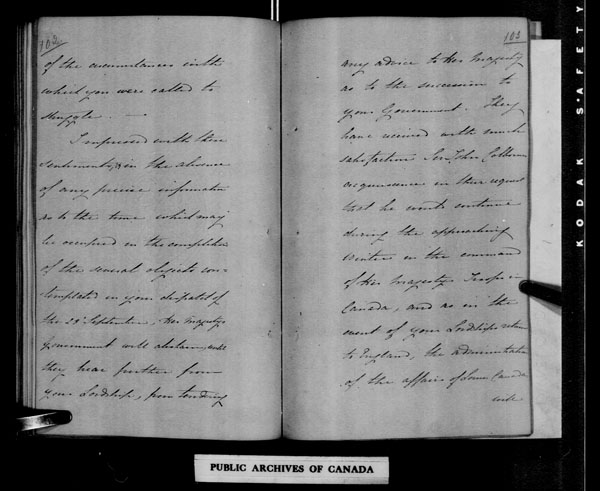 102
of the circumstances with
which you were called to
struggle. —
Impressed with these
sentiments, & in the absence
of any precise information
as to the time which may
be occupied in the completion
of the several objects con-
templated in your despatch of
the 29 September, Her Majesty's
Government will abstain, until
they hear further from
your Lordship, from tendering
103
any advice to Her Majesty
as to the succession to
your Government. They
have received with much
satisfaction Sir John Colborne
acquiescence in their request
that he would continue
during the approaching
Winter in the command
of Her Majesty's Troops in
Canada, and as in the
event of your Lordships return
to England, the administration
of the affairs of Lower Canada
will
PUBLIC ARCHIVES OF CANADA
KODAK S'AFETY